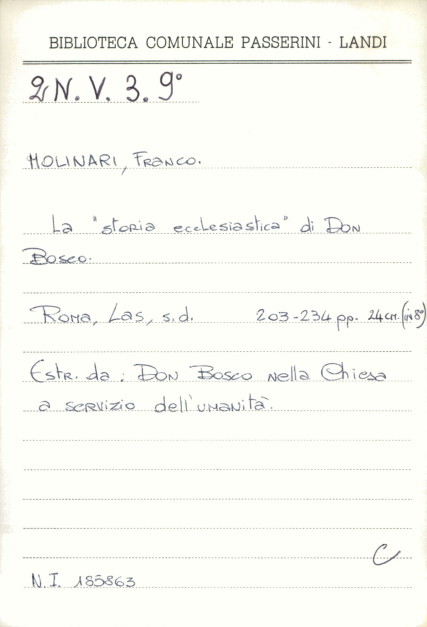 BIBLIOTECA COMUNALE PASSERINI - LANDI
2N. V. 3. 9°
MOLINARI, Franco.
La "storia ecclesiastica" di Don
Bosco.
Roma, Las, s.d. 203-234 pp. 24 cm. (in 8°)
Estr. da : Don Bosco nella Chiesa
a servizio dell'umanità.
C
N.I. 185863